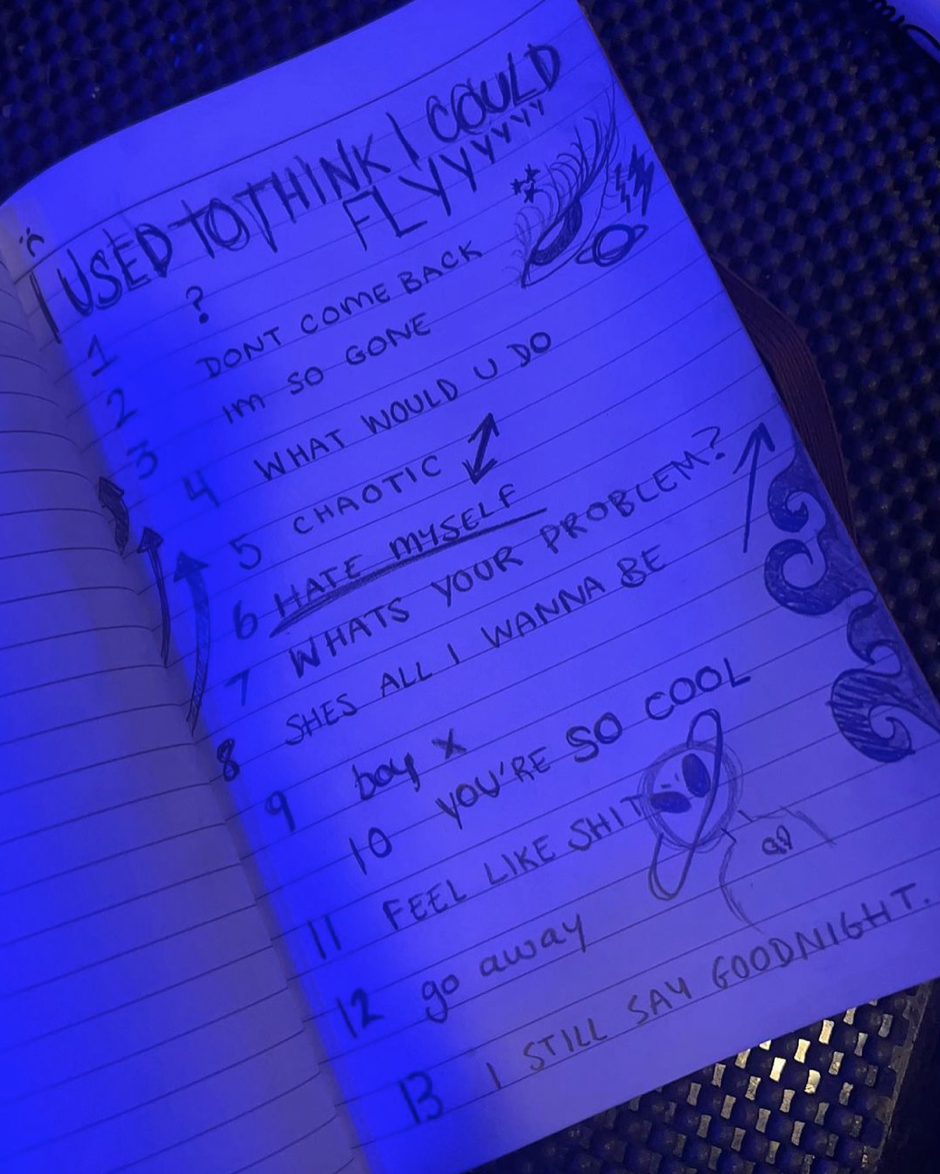 I USED TO THINK I COULD
FLYYYYYYY
1 ?
2 DONT COME BACK
3 IM SO GONE
4 WHAT WOULD U DO
5 CHAOTIC
6 HATE MYSELF
7 WHATS YOUR PROBLEM?
8 SHES ALL I WANNA BE
9 boy x
10 YOU'RE SO COOL
11 FEEL LIKE SHIT
12 go away
13 I STILL SAY GOODNIGHT.